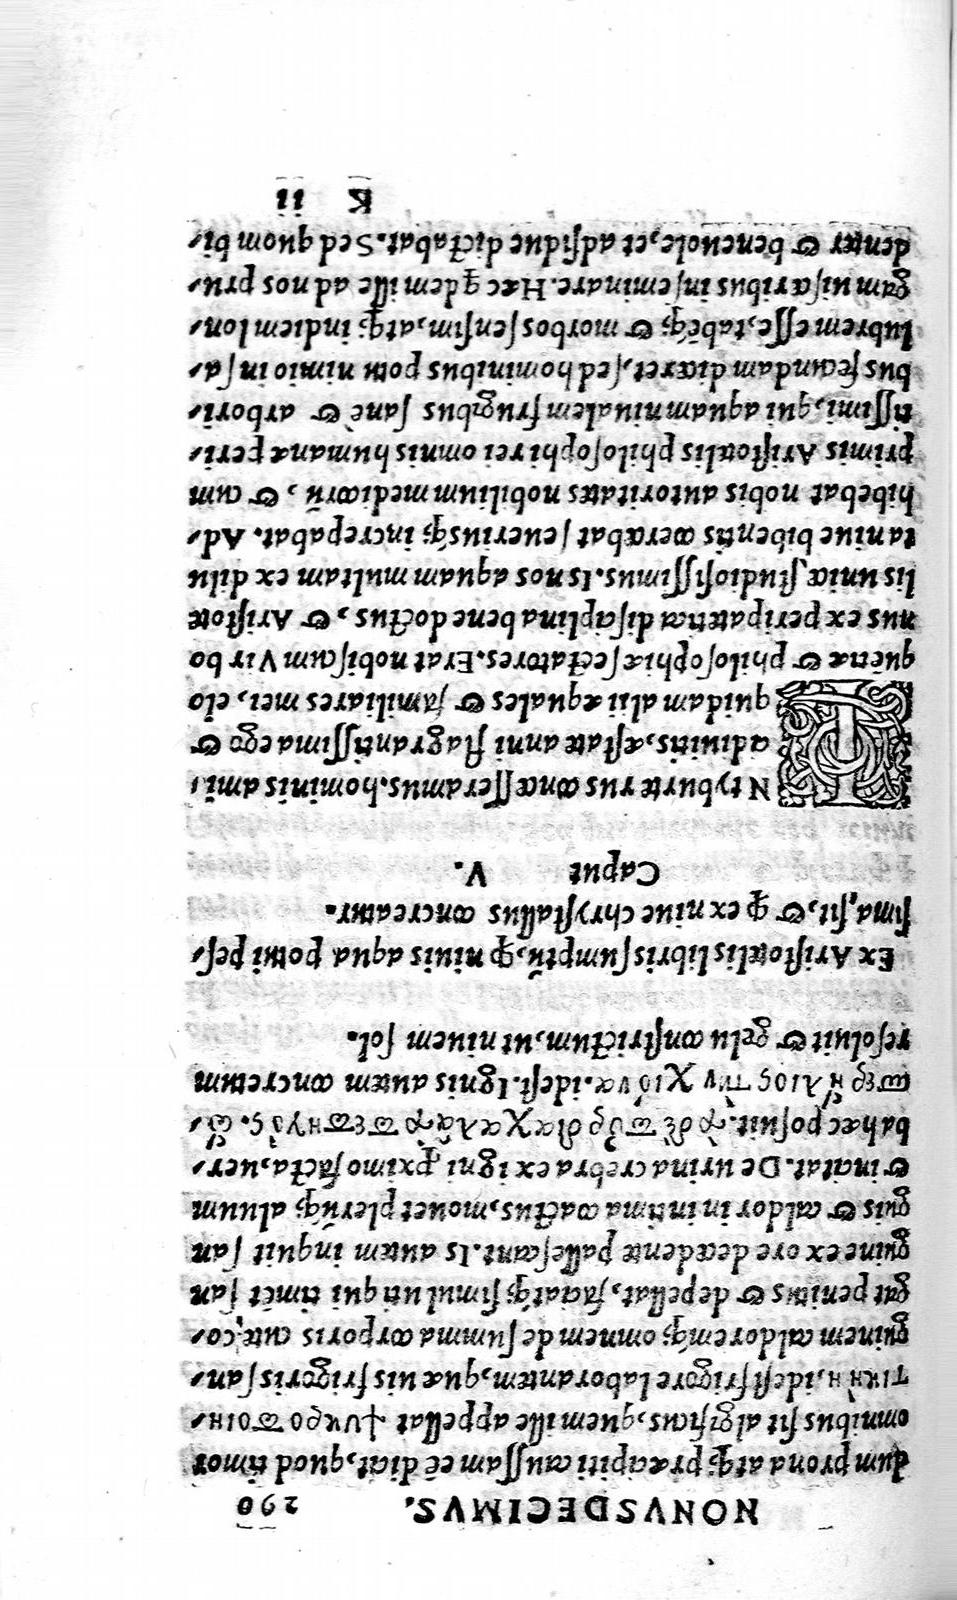 NONVSDECIMVS. 290
dum prona atq; præcipiti caussam eē dicit, quod timor
omnibus fit algificus, quem ille appellat ψυκροποιη/
τικὴν, idest frigore laborantem, quæ uis frigoris san/
guinem caldoremq; omnem de summa corporis cute, co/
gat penitus & depellat, faciatq; simul uti qui timēt san
guine ex ore decedente pallescant. Is autem inquit san
guis & caldor in intima coactus, mouet plerūq; aluum
& incitat. De urina crebra ex igni ꝓximo facta, uer/
ba hæc posuit. τὸ δὲ πῦρ διαχαλᾷ τὸ πεπηγὸς. ὥσ/
περ ἥλιος τὴν χιόνα. idest. Ignis autem concretum
resoluit & gelu constrictum, ut niuem sol.
Ex Aristotelis libris sumptū, ꝙ niuis aqua potui pes/
sima, sit, & ꝙ ex niue chrystallus concreatur.
Caput V.
IN tyburte rus concesseramus. hominis ami
ci diuitis, æstate anni flagrantissima ego &
quidam alii æquales & familiares mei, elo
quētiæ & philosophiæ sectatores. Erat nobiscum Vir bo
nus ex peripatetica disciplina bene doctus, & Aristote
lis unice, studiosissimus. Is nos aquam multam ex dilu
ta niue bibentis coercebat seueriusq; increpabat. Ad/
hibebat nobis autoritates nobilium medicorū, & cum
primis Aristotelis philosophi rei omnis humanæ peri/
tissimi, qui aquam niualem frugibus sanè & arbori/
bus fecundam diceret, sed hominibus potu nimio insa/
lubrem esse, tabēq; & morbos sensim, atq; in diem lon/
gam uisceribus inseminare. Hæc ꝗdem ille ad nos pru/
denter & beneuole, et adsidue dictabat. Sed quom bi/
K ii